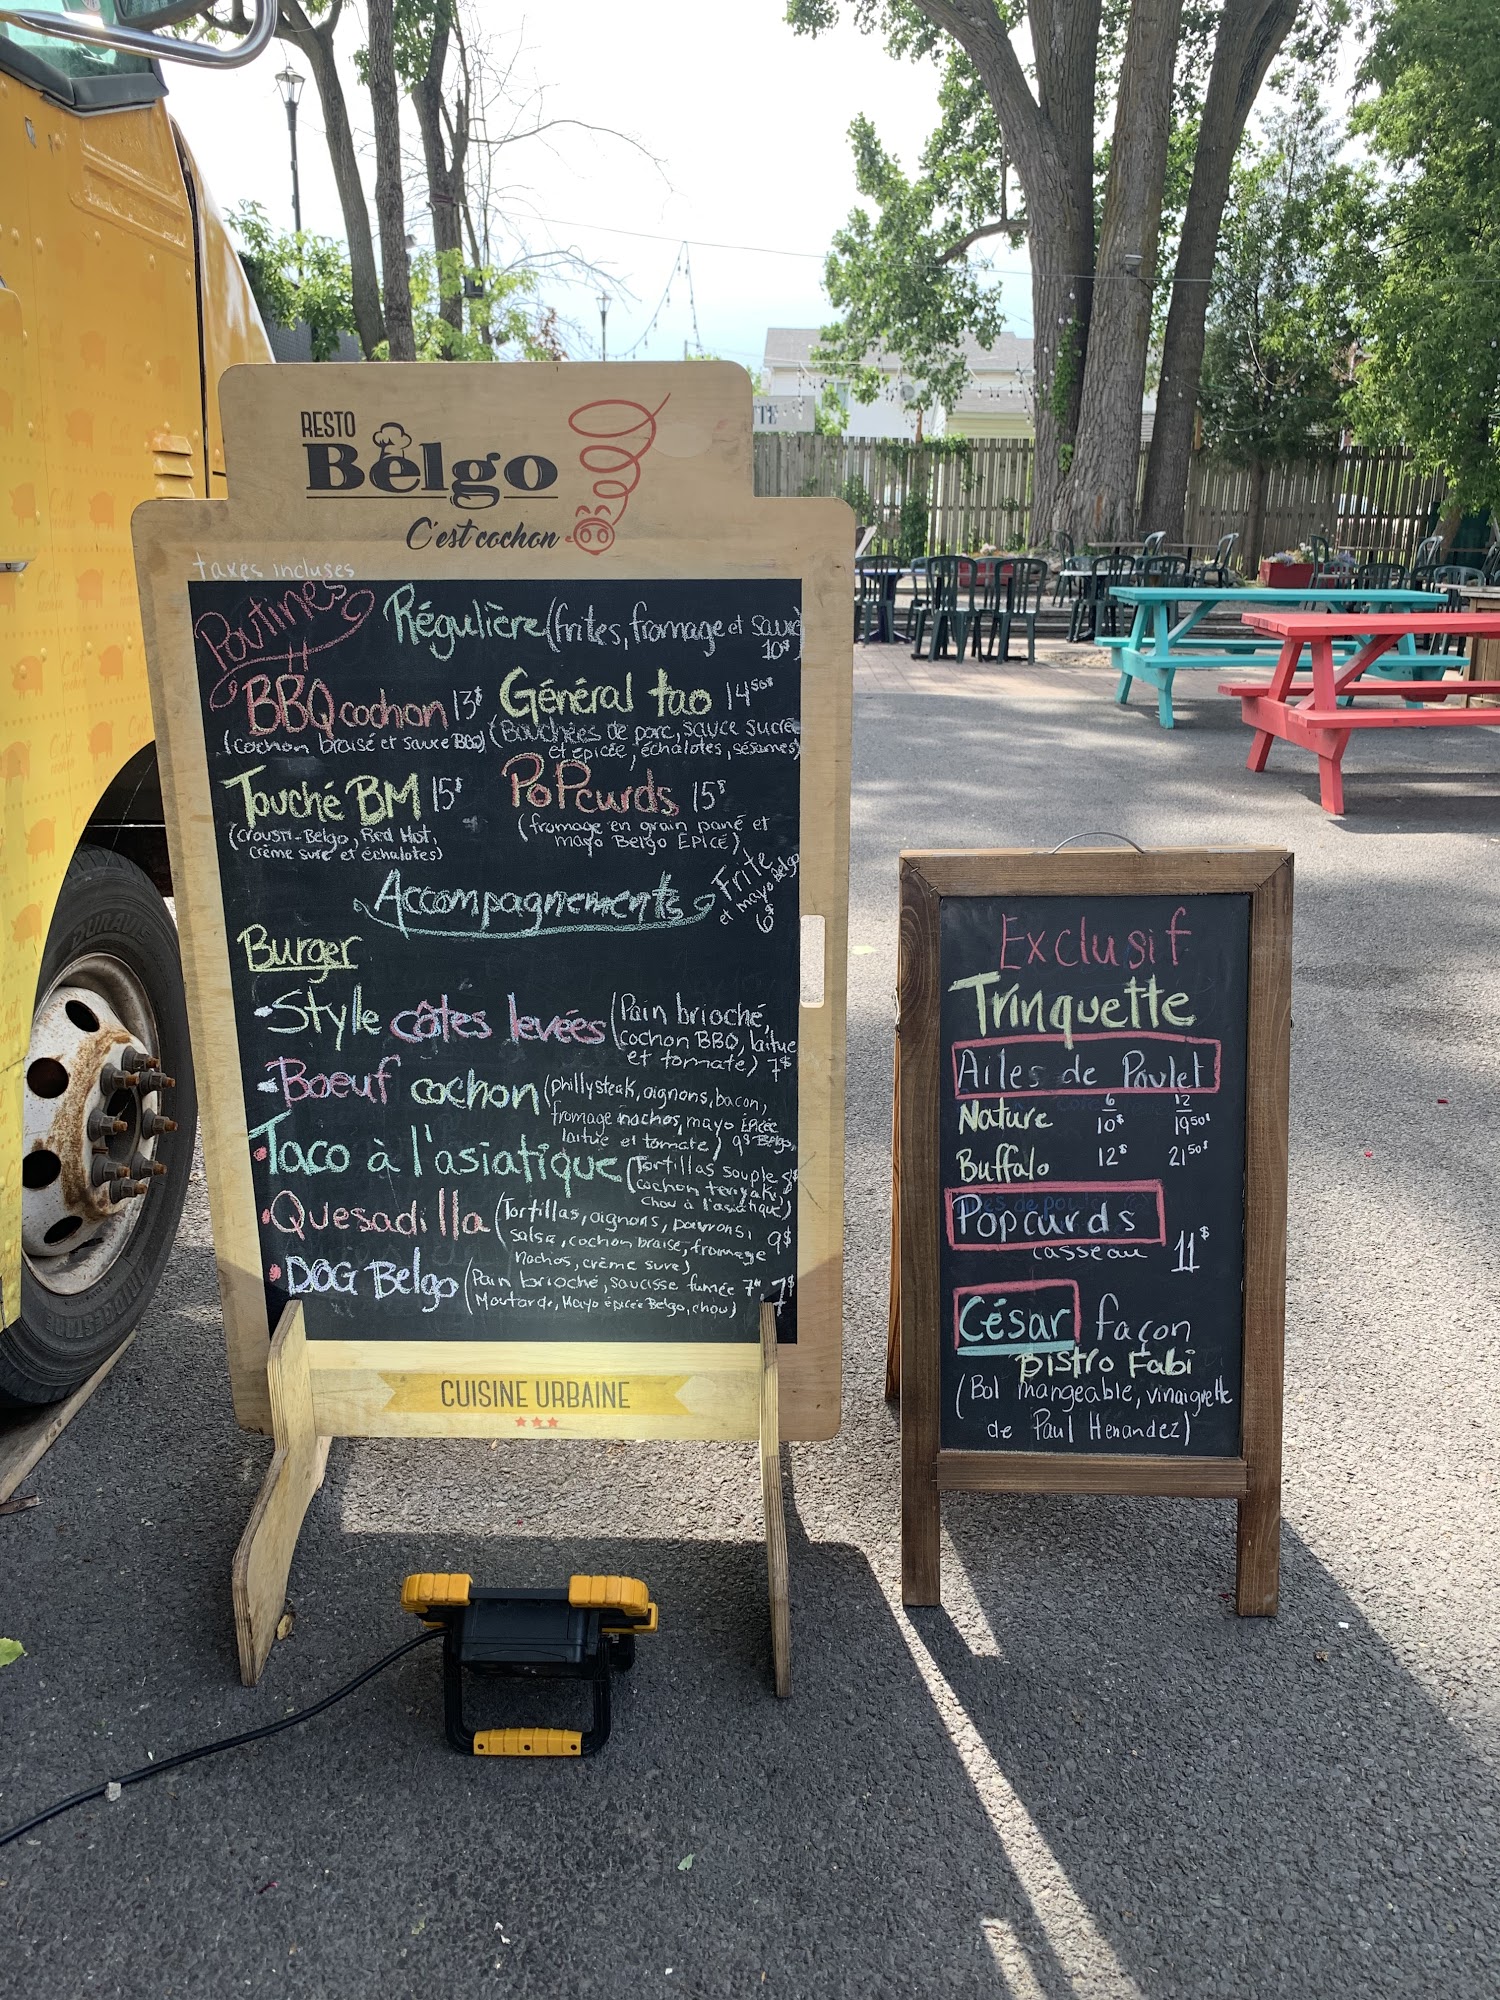 RESTO
Belgo
C'est cochon
taxes incluses
Poutines
Régulière (frites, fromage et sauce
10$)
BBQ cochon 13$
(cochon braisé et sauce BBQ)
Général tao 14 50$
(Bouchées de porc, sauce sucrée
et épicée, échalotes, sésames)
Touché BM 15$
(crousti-Belgo, Red Hot,
crème sure et échalotes)
PoPcurds 15$
(fromage en grain pané et
mayo Belgo ÉPICÉ)
Accompagnements
Frite
et mayo Belgo
6$
Burger
-Style côtes levées (Pain brioché,
cochon BBQ, laitue
et tomate) 7$
-Boeuf cochon (philly steak, oignons, bacon,
fromage nachos, mayo Épicée
laitue et tomate) 9$ Belgo,
Taco à l'asiatique (Tortillas souple 8$
cochon teriyaki,
chou à l'asiatique)
Quesadilla (Tortillas, oignons, poivrons,
salsa, cochon braisé, fromage 9$
Nachos, crème sure)
DOG Belgo (Pain brioché, saucisse fumée 7", 7$
Moutarde, Mayo épicée Belgo, chou)
CUISINE URBAINE
Exclusif
Trinquette
Ailes de Poulet
6 12
Nature 10$ 19 50$
Buffalo 12$ 21 50$
Popcurds
casseau 11$
César façon
Bistro Fabi
(Bol mangeable, vinaigrette
de Paul Henandez)
DURAVIS
BRIDGESTONE
TTE